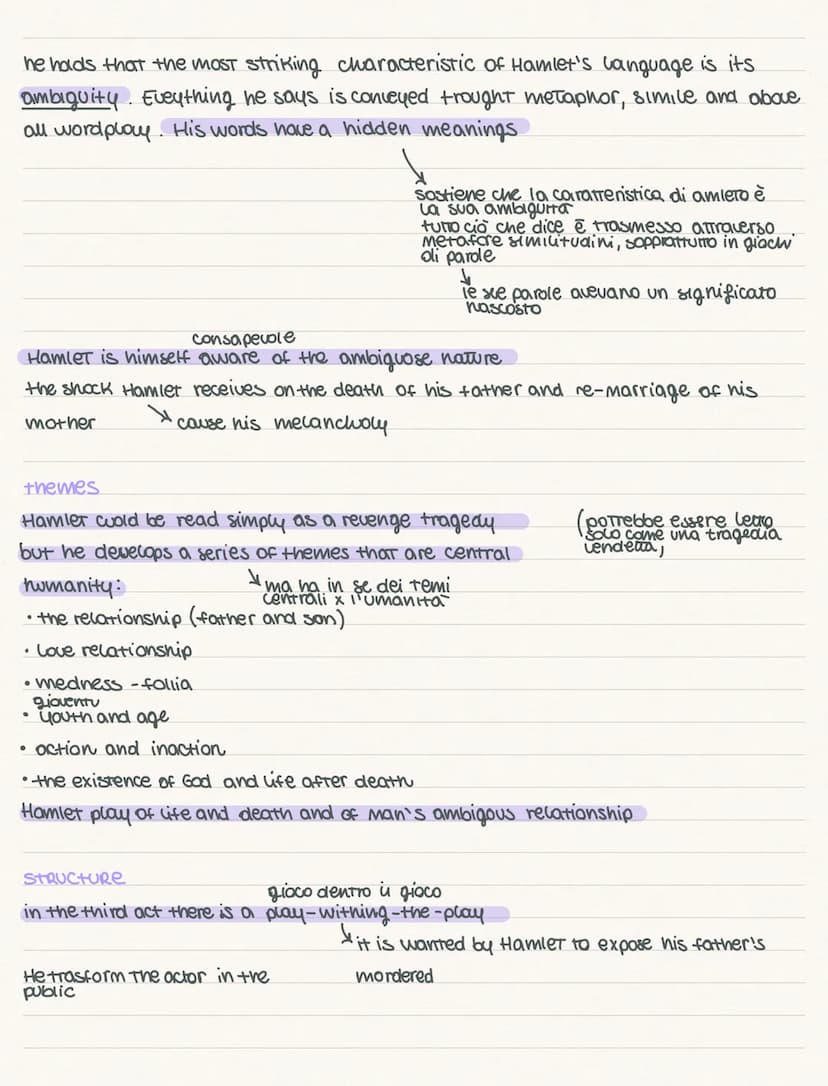 he holds that the most striking characteristic of Hamlet's language is its
ambiguity. Eveything he says is conveyed trought metaphor, simile and above
all wordplay. His words have a hidden meanings
sostiene che la caratteristica di amleto è
la sua ambiguità
tutto ciò che dice è trasmesso attraverso
metafore similitudini, soprattutto in giochi
di parole
le sue parole avevano un significato
nascosto
consapevole
Hamlet is himself aware of the ambiguose nature
the shock Hamlet receives on the death of his father and re-marriage of his
mother
cause his melancholy
themes
Hamlet could be read simply as a revenge tragedy
(potrebbe essere letto
solo come una tragedia
vendetta,
but he develops a series of themes that are central
humanity:
ma ha in se dei temi
centrali x l'umanità
• the relationship (father and son)
• Love relationship
• medness - follia
gioventu
• Youth and age
• action and inaction
• the existence of God and life after death
Hamlet play of life and death and of man's ambigous relationship
STRUCTURE
gioco dentro il gioco
in the third act there is a play-withing-the-play
it is wanted by Hamlet to expose his father's
mordered
He trasform the actor in the
public